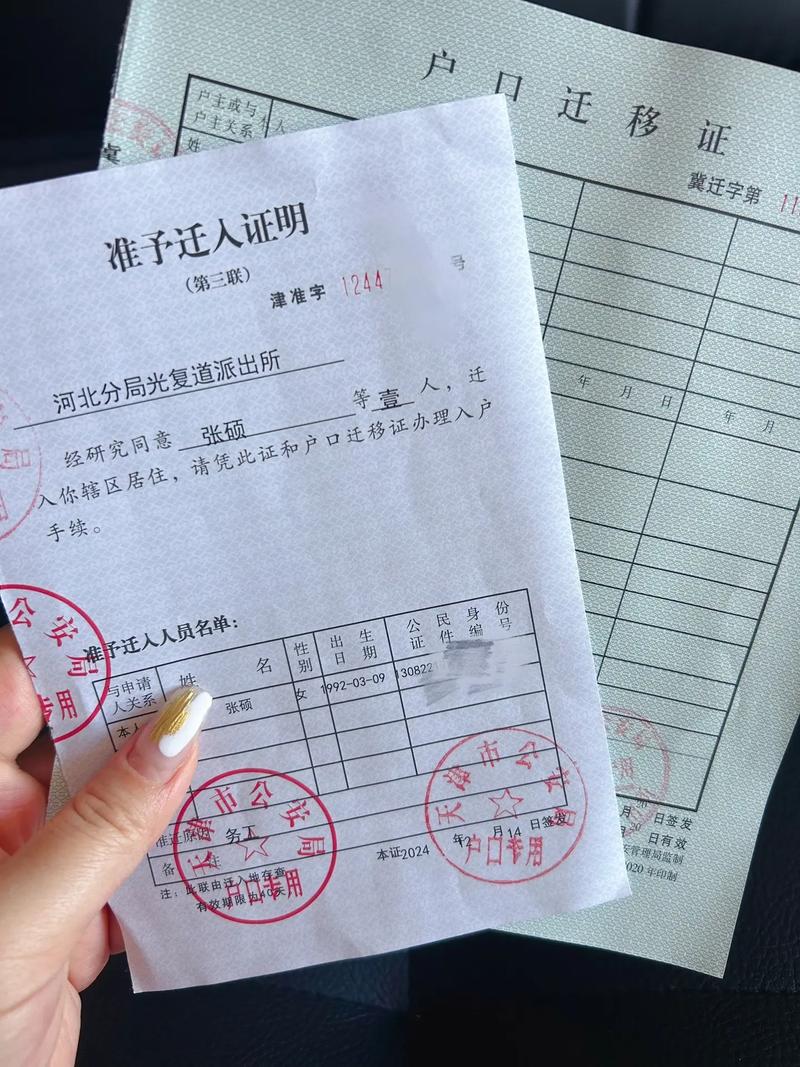 户口迁移证
冀迁字第 11
户主或与本人
户主关系
姓
年 月 日
年 月
准予迁入证明
（第三联）
津准字 1244 号
河北分局光复道派出所
经研究同意 张硕 等 壹 人，迁
入你辖区居住，请凭此证和户口迁移证办理入户
手续。
准予迁入人员名单：
与申请
人关系
姓 名
性
别
出 生
日 期
公 民 身 份
证 件 编 号
本人
张硕
女
1992-03-09
130822
准迁原因 务工
备 注
本证2024 年 2 月 14 日签发
注：此联由迁入地存查
有效期限为40天
公安局
专用
天津市公安局
户口专用
天津市公安局
户口专用
月 日签发
月 日有效
安管理局监制
2020年印制